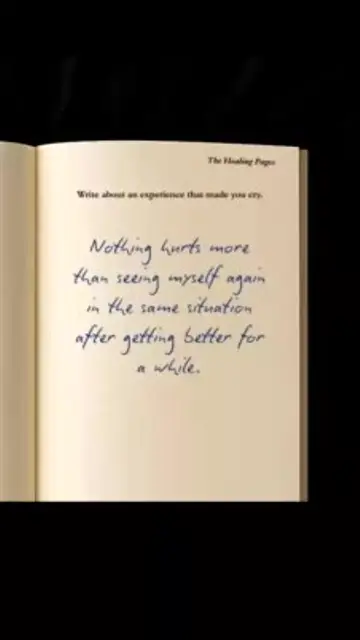 The Healing Pages
Write about an experience that made you cry.
Nothing hurts more
than seeing myself again
in the same situation
after getting better for
a while.